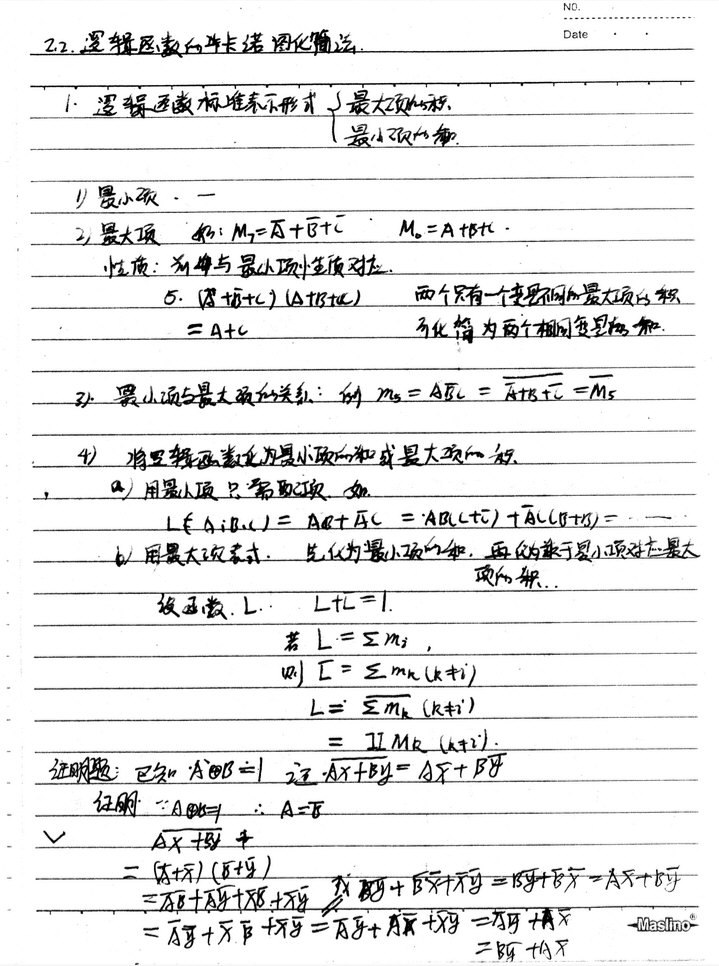 NO.
Date
2.2. 逻辑函数的卡诺图化简法.
1. 逻辑函数标准表示形式 { 最大项的积.
最小项的和.
1) 最小项. —
2) 最大项 如: M₇=A̅+B̅+C̅ M₀=A+B+C.
性质: 与最小项性质对应.
5. (A+B̅+C)(A+B+C) 两个只有一个变量不同的最大项的积
= A+C 可化简为两个相同变量的和.
3). 最小项与最大项的关系: 例 m₅ = AB̅C = \overline{A̅+B+C̅} = \overline{M₅}
4) 将逻辑函数化为最小项的和或最大项的积.
a) 用最小项 只需配项. 如.
L(A,B,C) = AB+A̅C = AB(C+C̅)+A̅C(B+B̅) = ...
b) 用最大项表式. 先化为最小项的和, 再化为 最小项对应最大
项的积...
设函数. L.. L+L̅=1.
若 L = Σ mᵢ ,
则 L̅ = Σ mₖ (k≠i)
L = \overline{Σ mₖ} (k≠i)
= Π Mₖ (k≠i).
证明题: 已知 A⊕B=1 证 \overline{AX+BY} = AX̅+BY̅
证明 ∵A⊕B=1 ∴ A=B̅
\overline{AX+BY}
= (A̅+X̅)(B̅+Y̅)
= A̅B̅+A̅Y̅+X̅B̅+X̅Y̅ BY̅+B̅X̅+X̅Y̅ = BY̅+B̅X̅ = AX̅+BY̅
= A̅Y̅+X̅B̅+X̅Y̅ = A̅Y̅+AX̅+X̅Y̅ = A̅Y̅+AX̅
= BY̅+AX̅
Maslino®